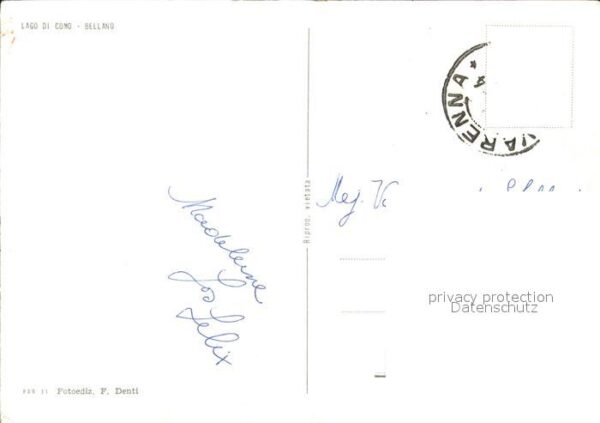 LAGO DI COMO - BELLANO
VARENNA
Ripro. vietata
Mej. V.
Madeleine
Jos
Felix
privacy protection
Datenschutz
Fotoediz. F. Denti